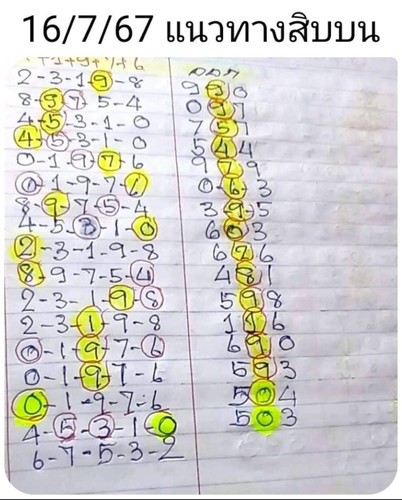 16/7/67 แนวทางสิบบน
2-3-1-9-8
8-9-7-5-4
4-5-3-1-0
4-5-3-1-0
0-1-9-7-6
0-1-9-7-6
8-9-7-5-4
4-5-3-1-0
2-3-1-9-8
8-9-7-5-4
2-3-1-9-8
2-3-1-9-8
0-1-9-7-6
0-1-9-7-6
0-1-9-7-6
4-5-3-1-0
6-7-5-3-2
930
097
751
544
979
0-6-3
3-9-5
603
6 6
481
598
116
690
593
504
503